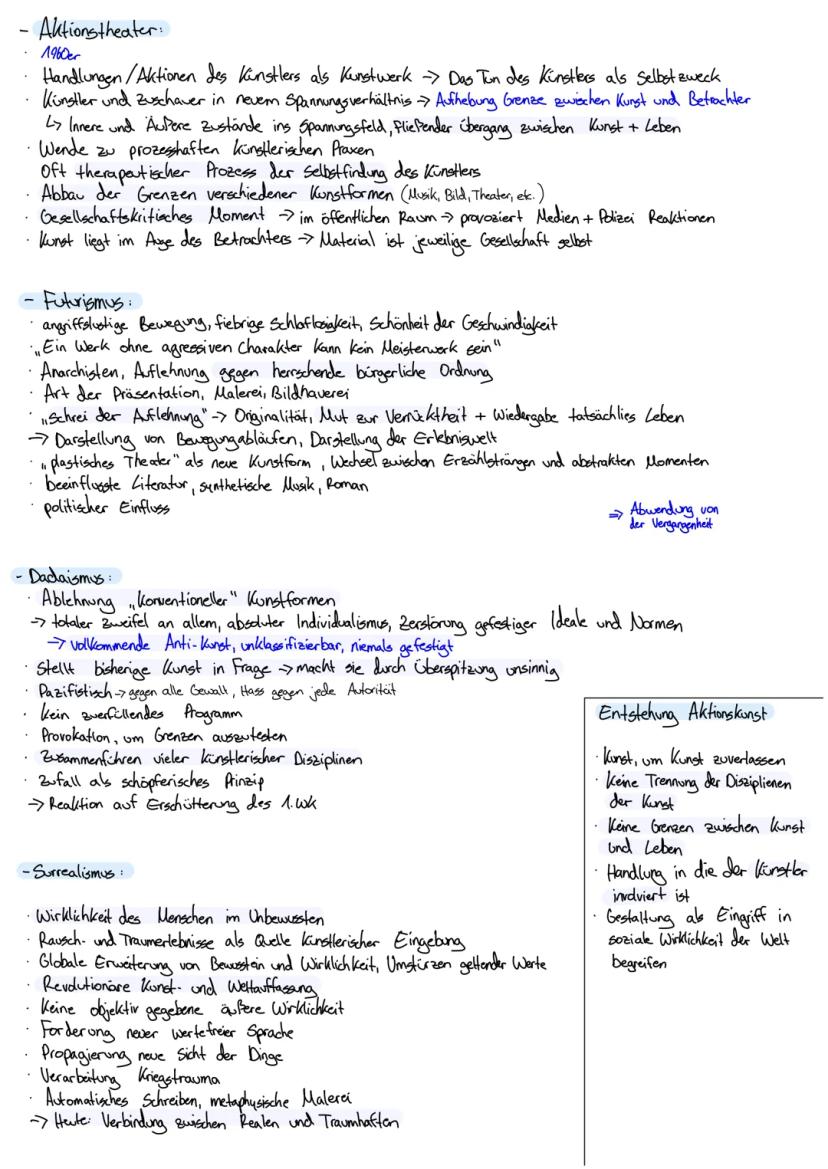 - Aktionstheater:
· 1960er
· Handlungen/Aktionen des Künstlers als Kunstwerk -> Das Tun des Künstlers als Selbstzweck
· Künstler und Zuschauer in neuem Spannungsverhältnis -> Aufhebung Grenze zwischen Kunst und Betrachter
↳ Innere und Äußere Zustände ins Spannungsfeld, fließender übergang zwischen Kunst + Leben
· Wende zu prozesshaften künstlerischen Praxen
Oft therapeutischer Prozess der Selbstfindung des Künstlers
· Abbau der Grenzen verschiedener Kunstformen (Musik, Bild, Theater, etc.)
· Gesellschaftskritisches Moment -> im öffentlichen Raum -> provoziert Medien + Polizei Reaktionen
· Kunst liegt im Auge des Betrachters -> Material ist jeweilige Gesellschaft selbst
- Futurismus:
· angriffslustige Bewegung, fiebrige Schlaflosigkeit, Schönheit der Geschwindigkeit
· „Ein Werk ohne agressiven Charakter kann kein Meisterwerk sein"
· Anarchisten, Auflehnung gegen herrschende bürgerliche Ordnung
· Art der Präsentation, Malerei, Bildhauerei
· „Schrei der Auflehnung" -> Originalität, Mut zur Verrücktheit + Wiedergabe tatsächlies Leben
-> Darstellung von Bewegungabläufen, Darstellung der Erlebniswelt
· „plastisches Theater" als neue Kunstform, Wechsel zwischen Erzählsträngen und abstrakten Momenten
· beeinflusste Literatur, synthetische Musik, Roman
· politischer Einfluss
=> Abwendung von
der Vergangenheit
- Dadaismus:
· Ablehnung „konventioneller" Kunstformen
-> totaler Zweifel an allem, absoluter Individualismus, Zerstörung gefestiger Ideale und Normen
-> vollkommende Anti-Kunst, unklassifizierbar, niemals gefestigt
· Stellt bisherige Kunst in Frage -> macht sie durch Überspitzung unsinnig
· Pazifistisch -> gegen alle Gewalt, Hass gegen jede Autorität
· Kein zuerfüllendes Programm
· Provokation, um Grenzen auszutesten
· Zusammenführen vieler künstlerischer Disziplinen
· Zufall als schöpferisches Prinzip
-> Reaktion auf Erschütterung des 1.WK
- Surrealismus:
· Wirklichkeit des Menschen im Unbewussten
· Rausch- und Traumerlebnisse als Quelle künstlerischer Eingebung
· Globale Erweiterung von Bewusstein und Wirklichkeit, Umstürzen geltender Werte
· Revolutionäre Kunst- und Weltauffassung
· Keine objektiv gegebene äußere Wirklichkeit
· Forderung neuer wertefreier Sprache
· Propagierung neue Sicht der Dinge
· Verarbeitung Kriegstrauma
· Automatisches Schreiben, metaphysische Malerei
-> Heute: Verbindung zwischen Realen und Traumhaften
Entstehung Aktionskunst
· Kunst, um Kunst zuverlassen
· Keine Trennung der Disziplienen
der Kunst
· Keine Grenzen zwischen Kunst
und Leben
· Handlung in die der Künstler
involviert ist
· Gestaltung als Eingriff in
soziale Wirklichkeit der Welt
begreifen